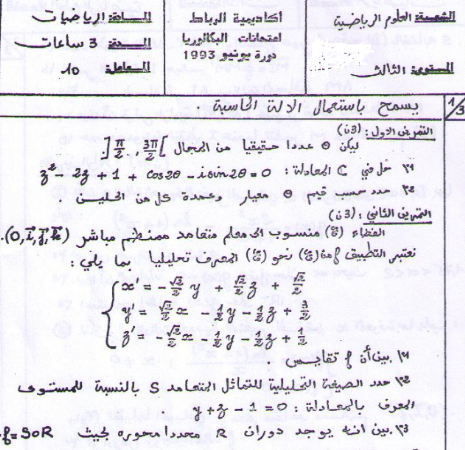 الشعبة: العلوم الرياضية
المستوى: الثالث
أكاديمية الرباط
امتحانات البكالوريا
دورة يونيو 1993
المادة: الرياضيات
المدة: 3 ساعات
المعامل: 10
1/3
يسمح باستعمال الآلة الحاسبة
التمرين الأول: (3ن)
ليكن θ عددا حقيقيا من المجال ]π/2 , 3π/2[.
1) حل في C المعادلة: z² - 2z + 1 + cos2θ - isin2θ = 0
2) حدد حسب قيم θ معيار وعمدة كل من الحلين.
التمرين الثاني: (3ن)
الفضاء (ع) منسوب الى معلم متعامد ممنظم مباشر (O, i, j, k).
نعتبر التطبيق f من (ع) نحو (ع) المعرف تحليليا بما يلي:
x' = -√2/2 y + √2/2 z + √2/2
y' = √2/2 x - 1/2 y - 1/2 z + 3/2
z' = -√2/2 x - 1/2 y - 1/2 z + 1/2
1) بين أن f تقايس.
2) حدد الصيغة التحليلية للتماثل المتعامد S بالنسبة للمستوى
المعرف بالمعادلة: y + z - 1 = 0
3) بين أنه يوجد دوران R محددا محوره بحيث f = SoR